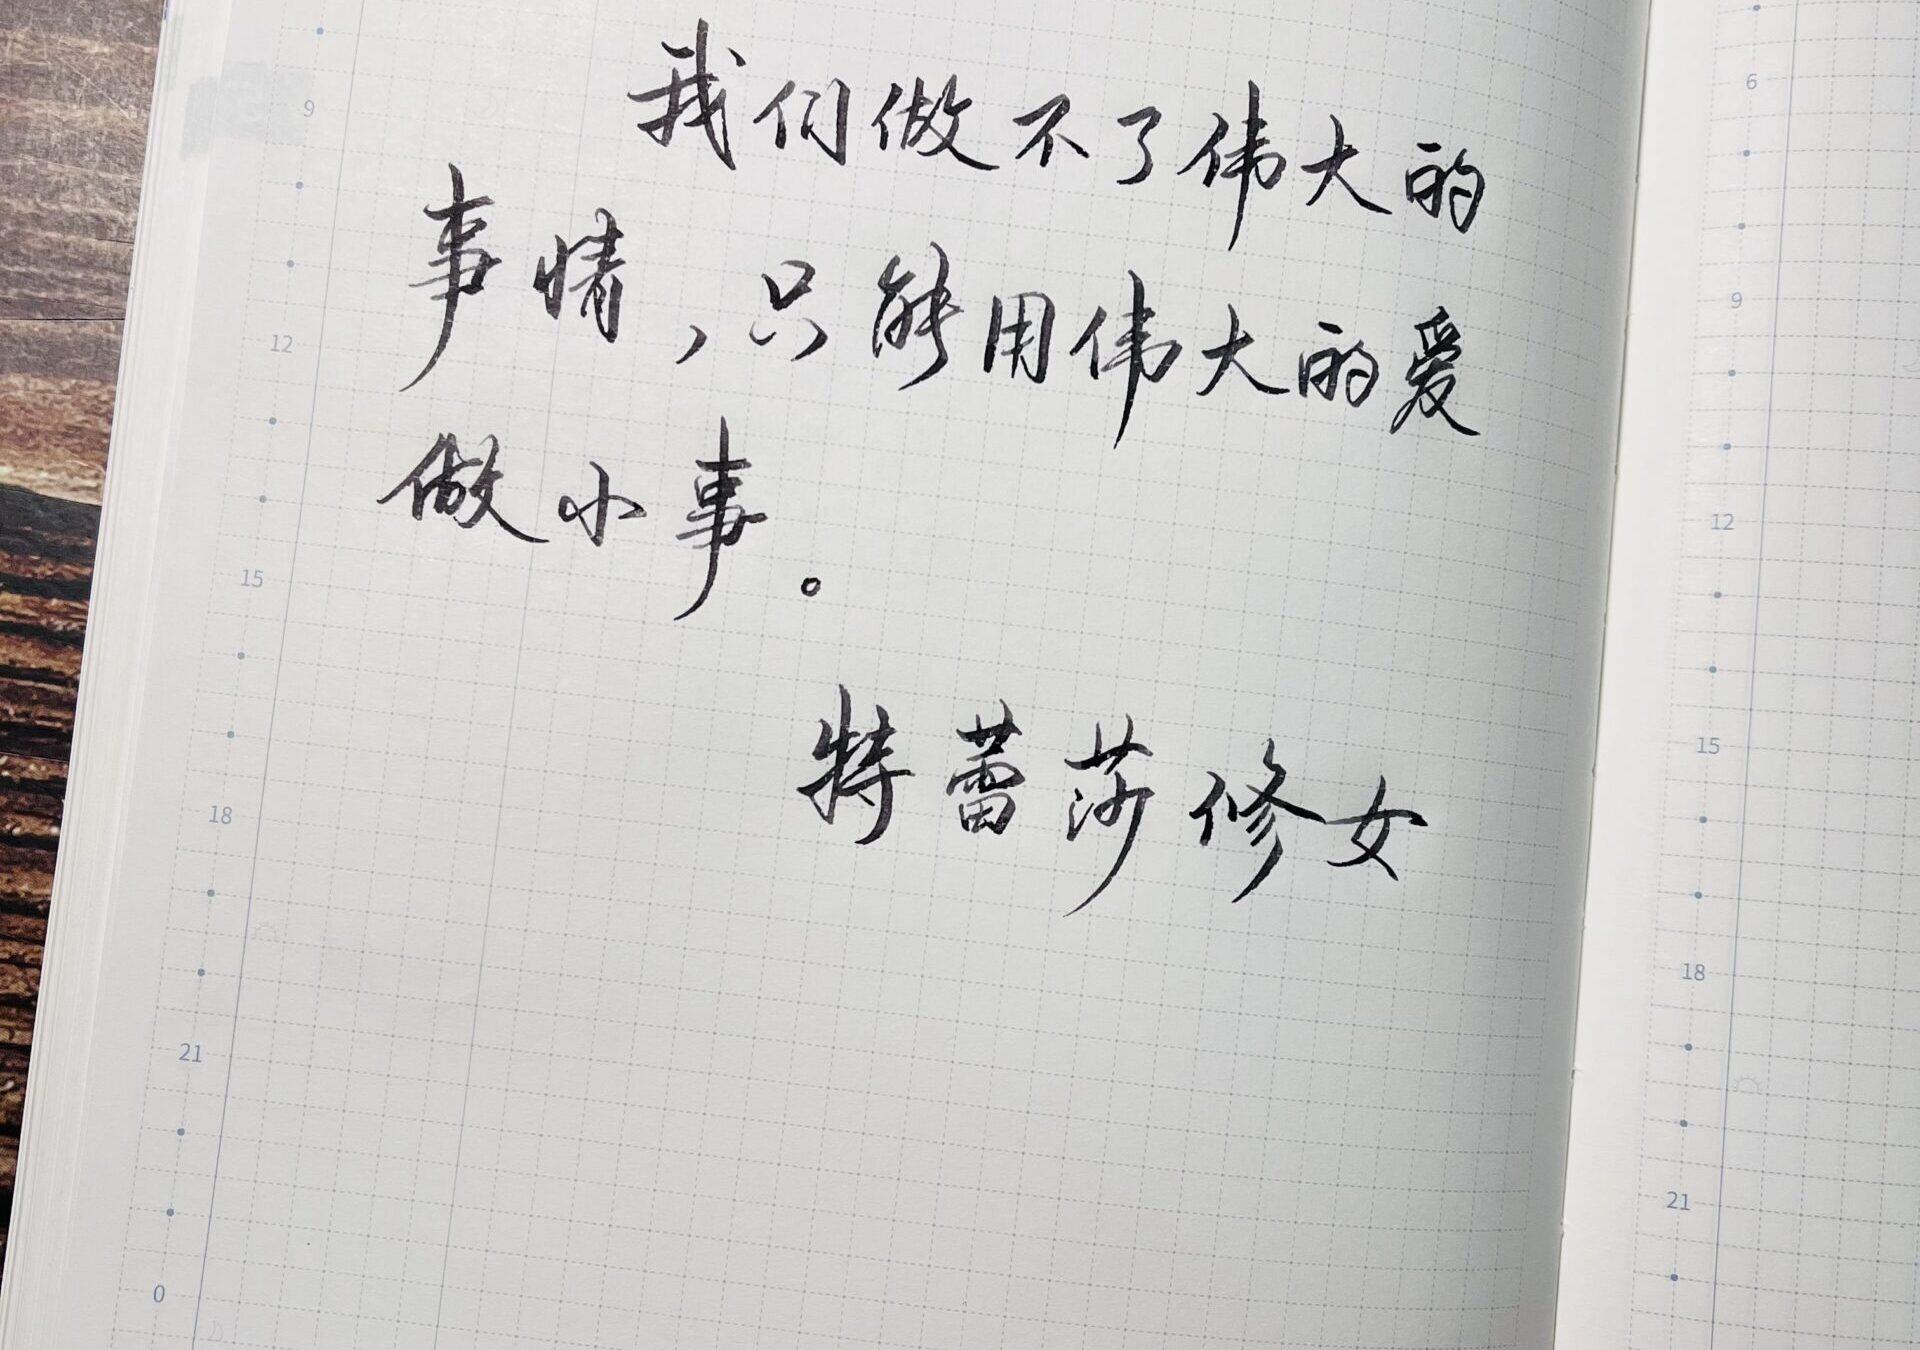 我们做不了伟大的
事情,只能用伟大的爱
做小事。
特蕾莎修女
9
12
15
18
21
0
6
9
12
15
18
21